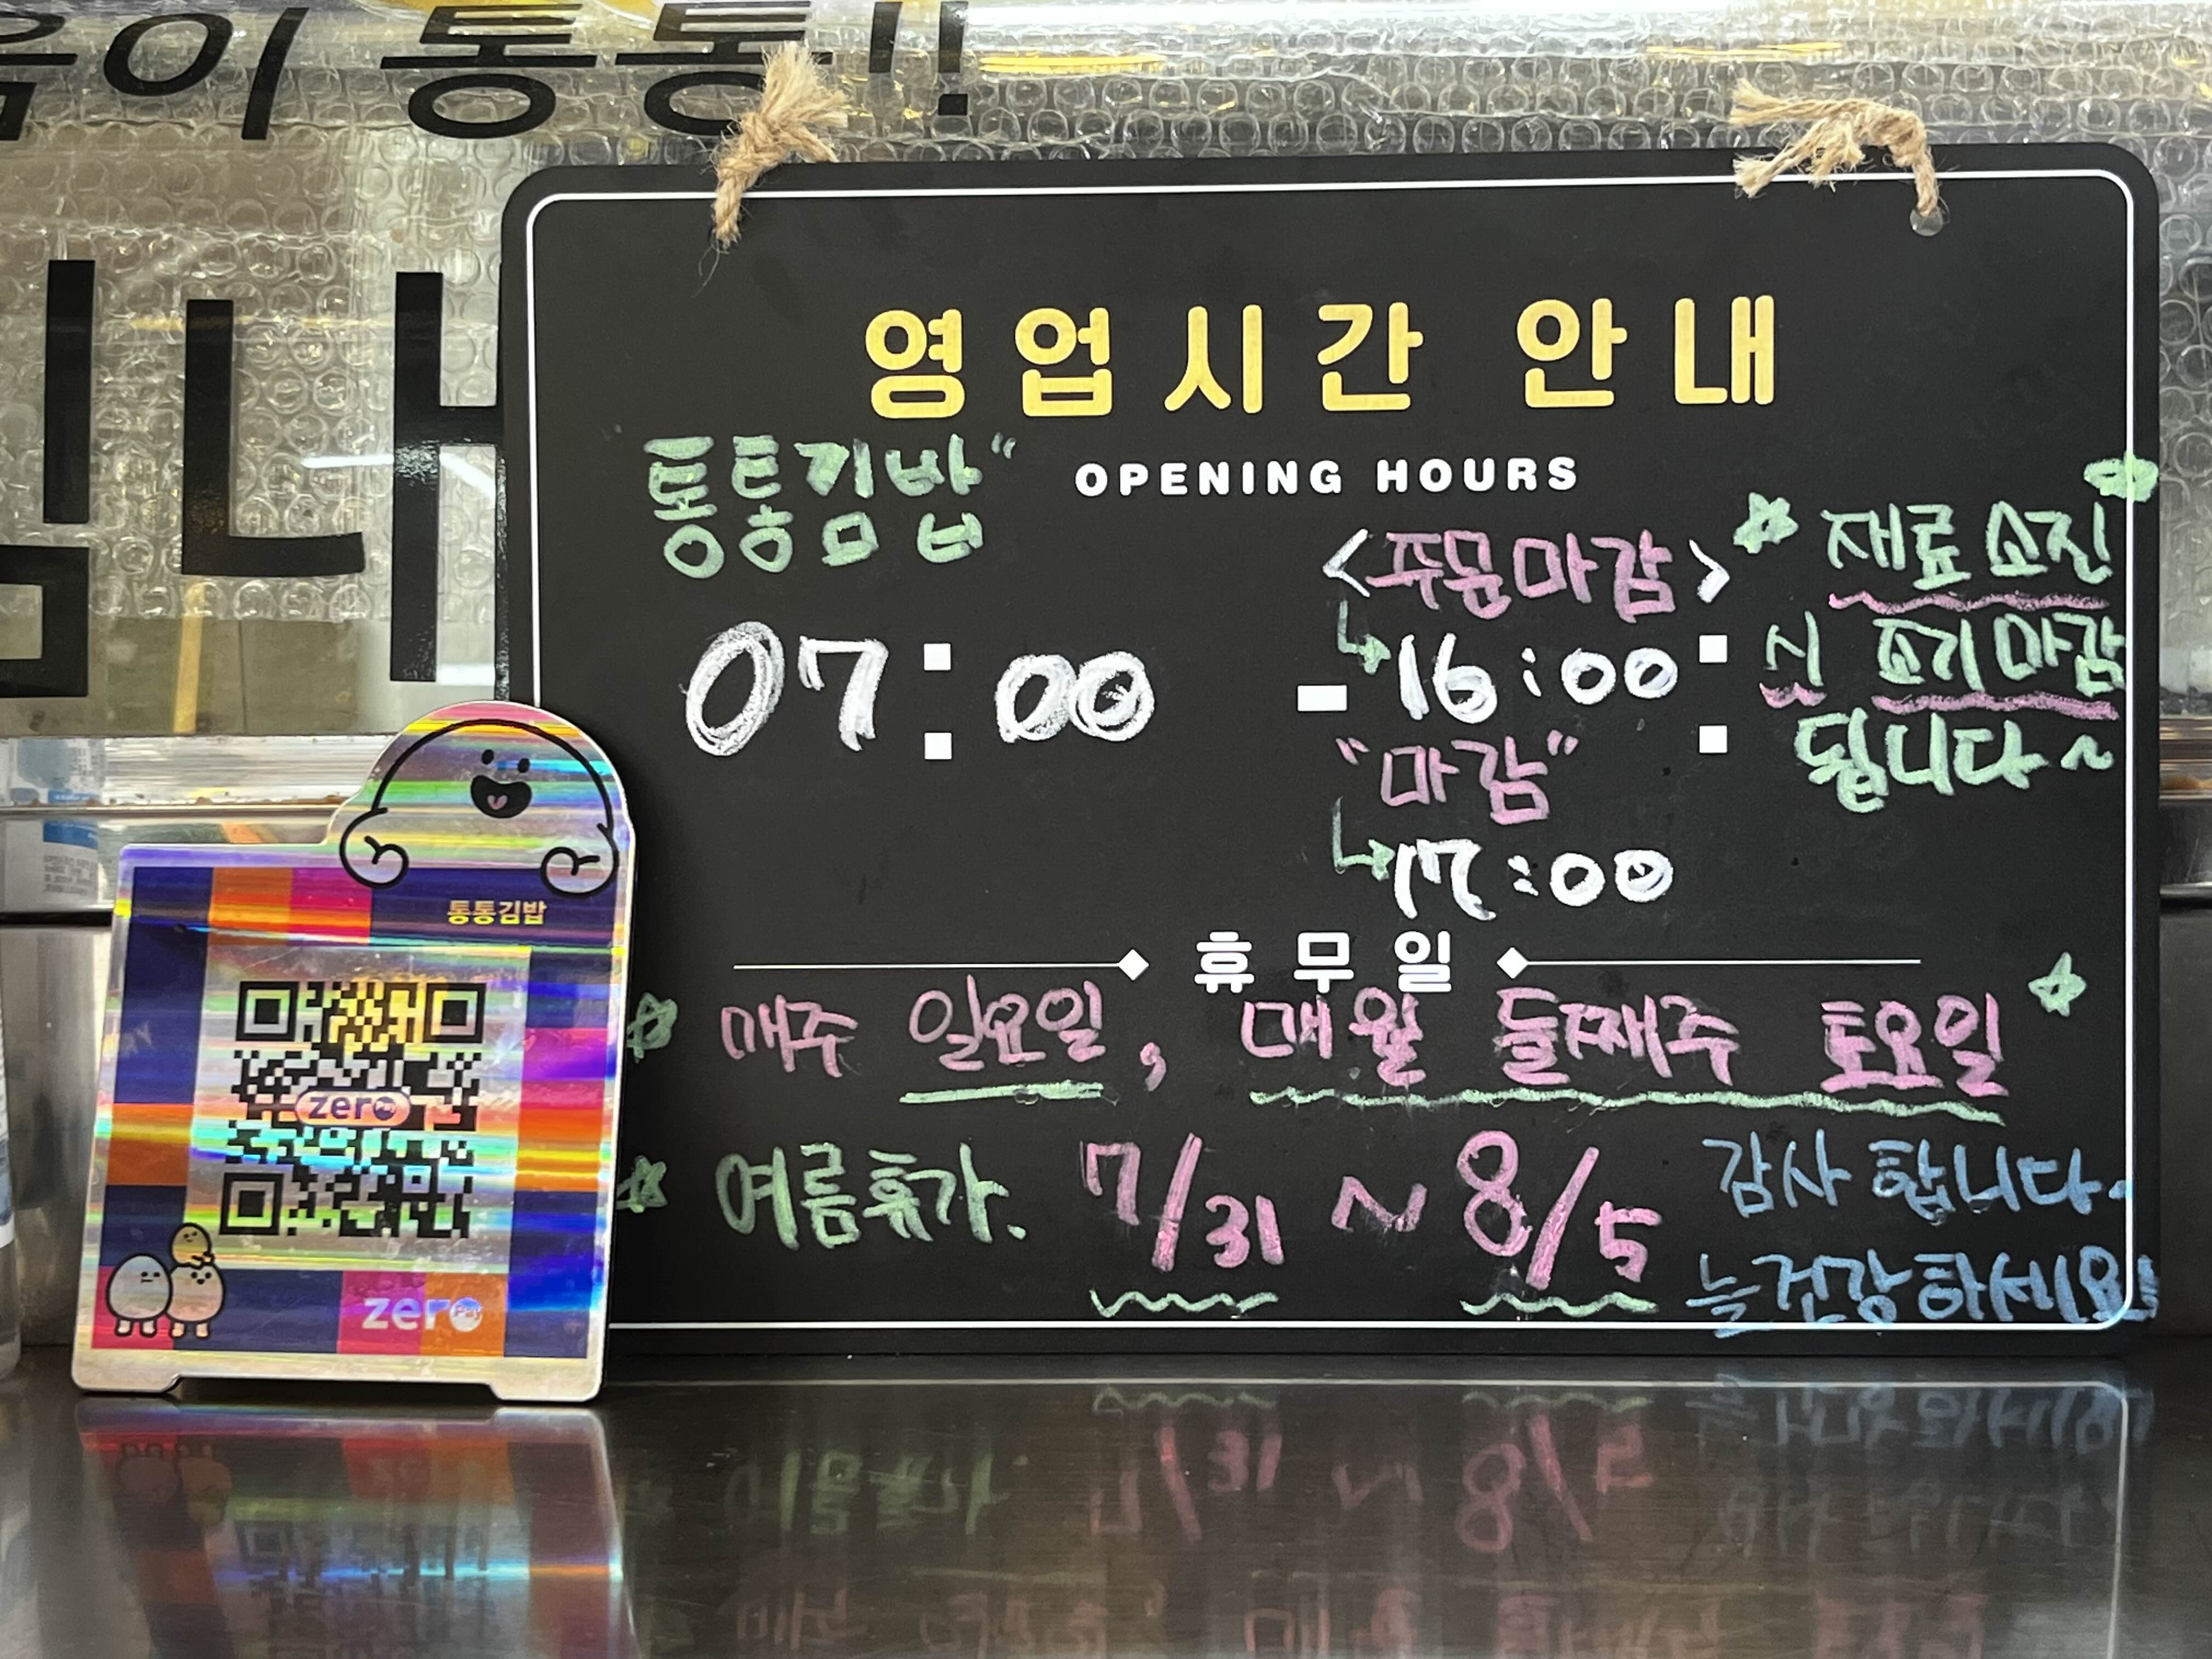 통통!!
영업시간 안내
OPENING HOURS
통통김밥"
07:00
-
<주문마감>
16:00
"마감"
17:00
재료소진
시 조기마감
됩니다~
휴무일
매주 일요일, 매월 둘째주 토요일
여름휴가. 7/31 ~ 8/5
감사합니다.
늘건강하세요
통통김밥
zero
zero Pay